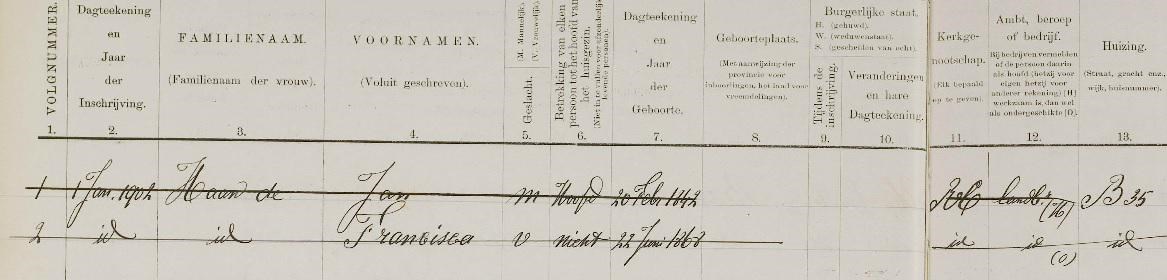 VOLGNUMMER.
1.
Dagteekening
en
Jaar
der
Inschrijving.
2.
FAMILIENAAM.
(Familienaam der vrouw).
3.
VOORNAMEN.
(Voluit geschreven).
4.
Geslacht. (M. Mannelijk). (V. Vrouwelijk).
5.
Betrekking van elken
persoon tot het hoofd van
het huisgezin.
(Niet in te vullen voor afzonderlijk
levende personen).
6.
Dagteekening
en
Jaar
der
Geboorte.
7.
Geboorteplaats.
(Met aanwijzing der
provincie voor
inboorlingen, het land voor
vreemdelingen).
8.
Burgerlijke staat.
H. (gehuwd).
W. (weduwenstaat).
S. (gescheiden van echt).
Tijdens de
inschrijving.
9.
Veranderingen
en hare
Dagteekening.
10.
Kerkge-
nootschap.
(Elk bepaald
op te geven).
11.
Ambt, beroep
of bedrijf.
Bij bedrijven vermelden
of de persoon daarin
als hoofd (hetzij voor
eigen hetzij voor
anderer rekening) [H]
werkzaam is, dan wel
als ondergeschikte [O].
12.
Huizing.
(Straat, gracht enz.,
wijk, huisnummer).
13.
1 1 Jan. 1902 Haan de Jan m Hoofd 20 Feb. 1842 RK landb. (H) B 35
2 id id Francisca v nicht 22 Juni 1868 id id (O) id